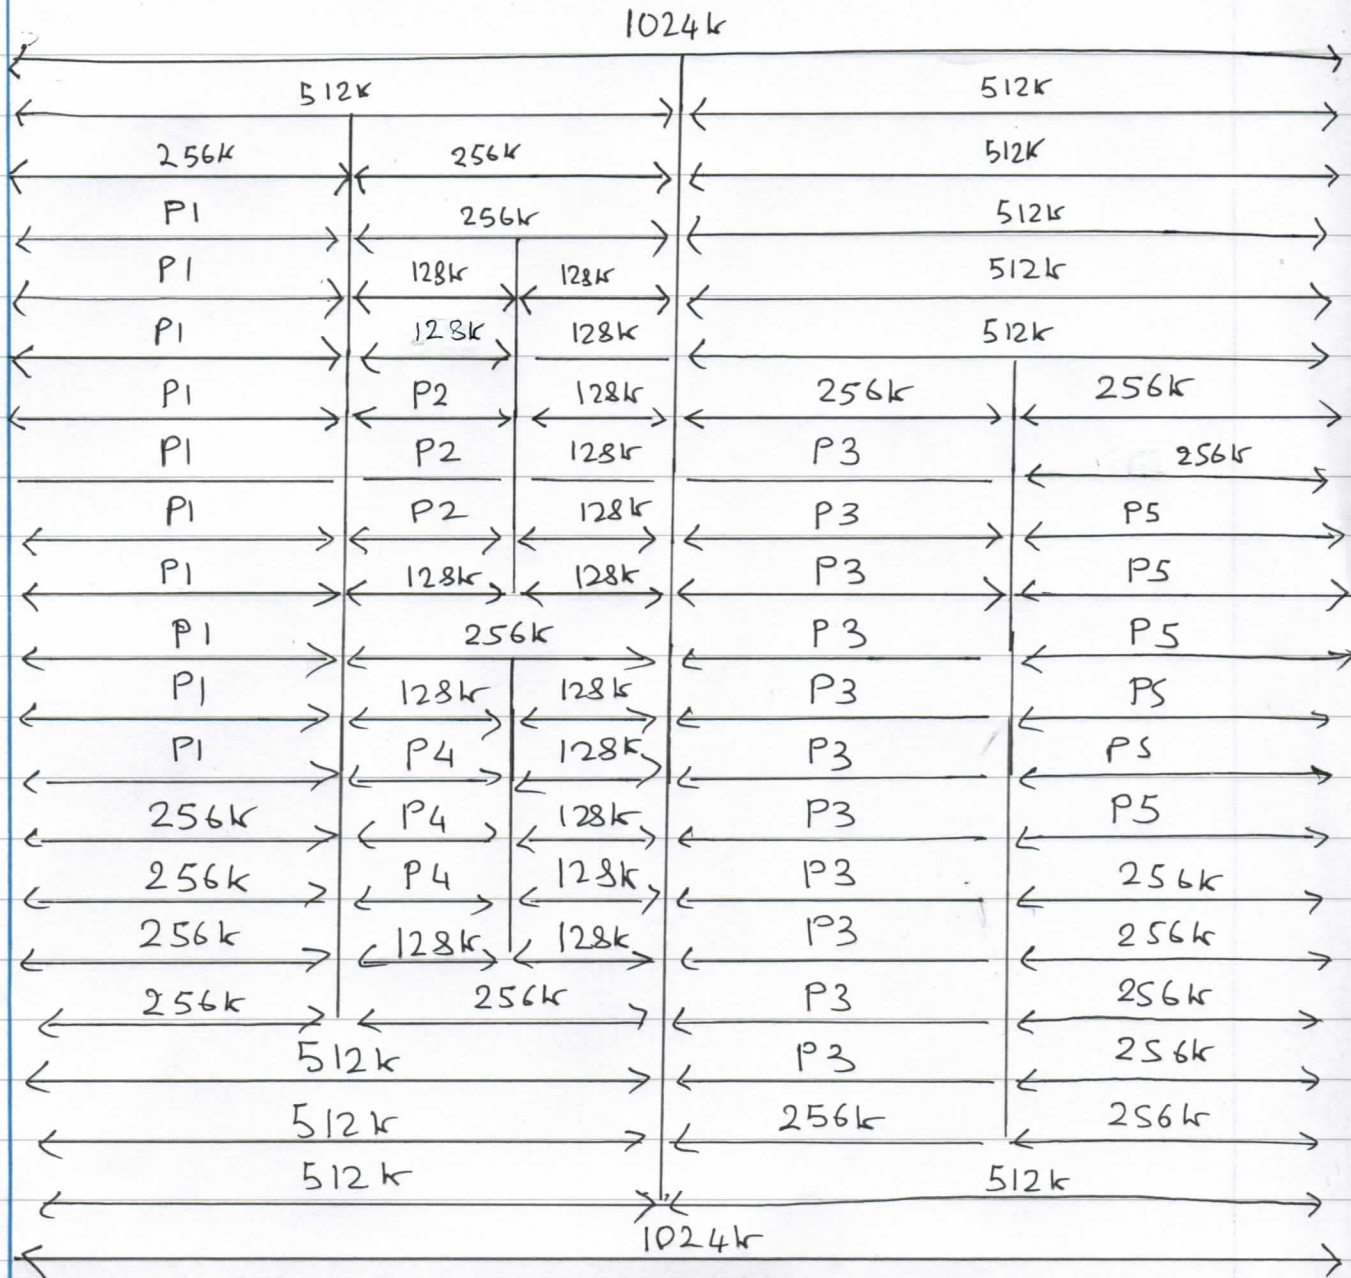 1024k
512k 512k
256k 256k 512k
P1 256k 512k
P1 128k 128k 512k
P1 128k 128k 512k
P1 P2 128k 256k 256k
P1 P2 128k P3 256k
P1 P2 128k P3 P5
P1 128k 128k P3 P5
P1 256k P3 P5
P1 128k 128k P3 P5
P1 P4 128k P3 P5
256k P4 128k P3 P5
256k P4 128k P3 256k
256k 128k 128k P3 256k
256k 256k P3 256k
512k P3 256k
512k 256k 256k
512k 512k
1024k